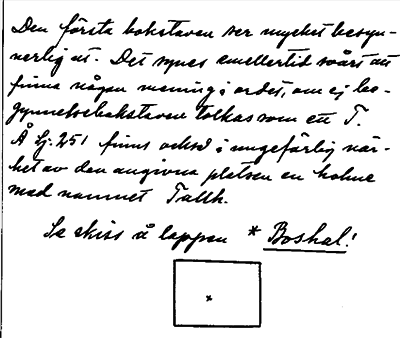 Den första bokstaven ser mycket besyn-
nerlig ut. Det synes emellertid svårt att
finna någon mening i ordet, om ej be-
gynnelsebokstaven tolkas som ett T.
Å Lj. 251 finns också i ungefärlig när-
het av den angivna platsen en holme
med namnet Tallh.
Se skiss å lappen * Boshal!